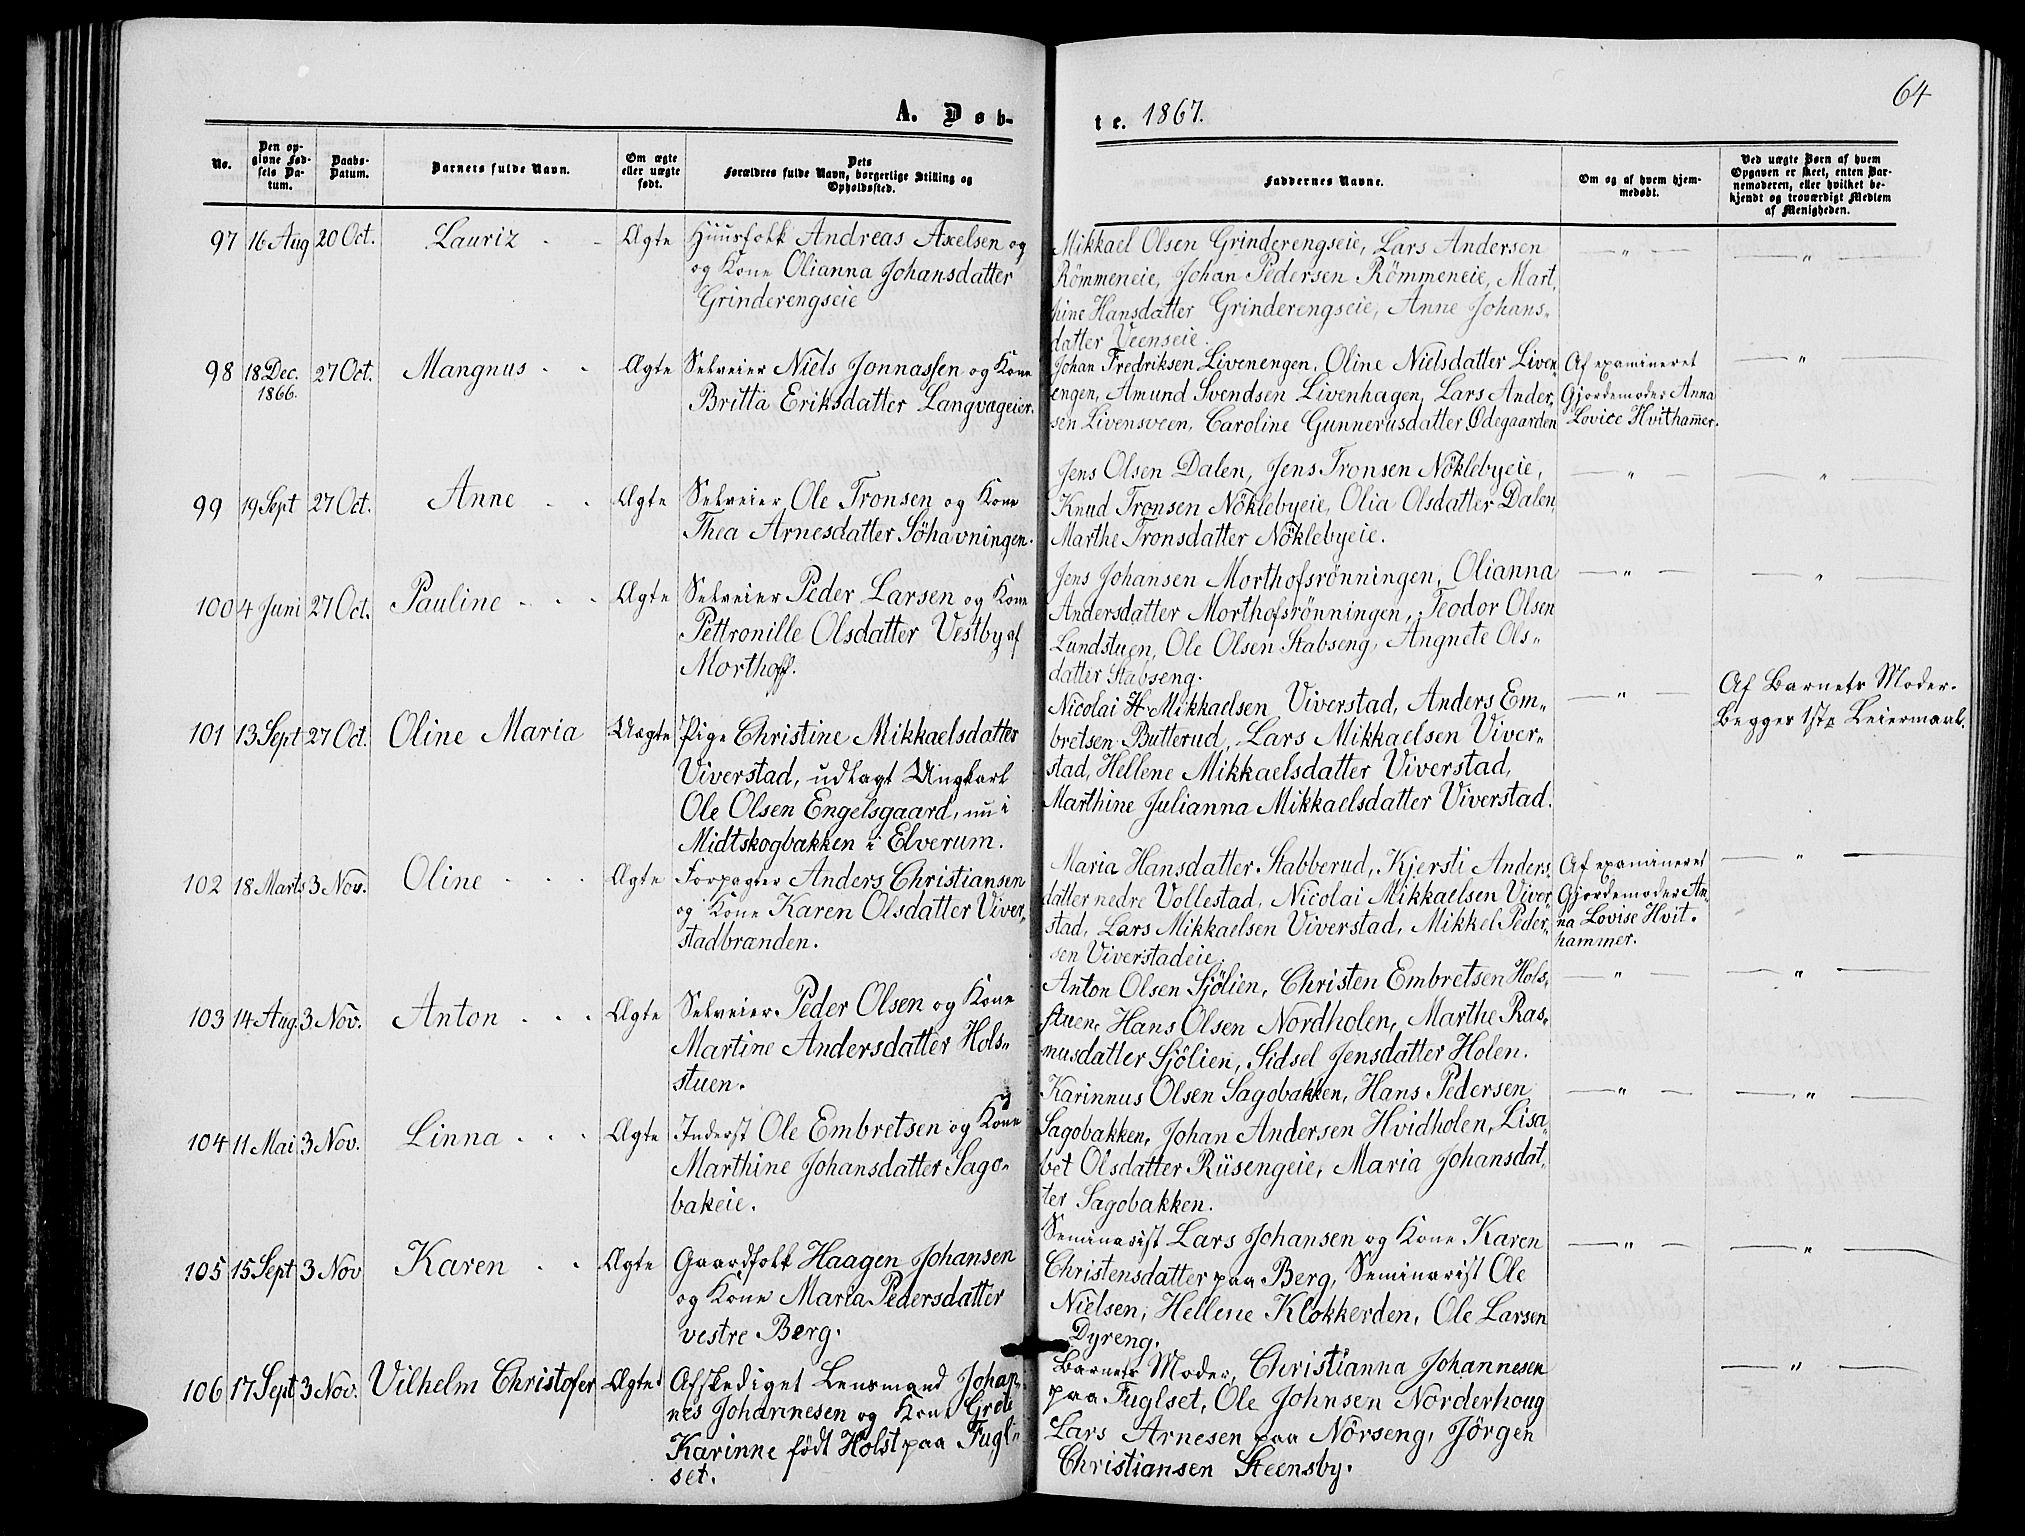 64
A. Døb-
te. 1867.
No.
Den op-
givne Fød-
sels Da-
tum.
Daabs-
Datum.
Barnets fulde Navn.
Om ægte
eller uægte
født.
Dets
Forældres fulde Navn, borgerlige Stilling og
Opholdssted.
Faddernes Navne.
Om og af hvem hjem-
medøbt.
Ved uægte Børn af hvem
Opgaven er skeet, enten Bar-
nemoderen, eller hvilket be-
kjendt og troværdigt Medlem
af Menigheden.
97 16 Aug 20 Oct. Lauriz - - Ægte Huusfolk Andreas Axelsen og
og Kone Olianna Johansdatter
Grinderengseie
Mikkael Olsen Grinderengseie, Lars Andersen
Römmeneie, Johan Pedersen Römmeneie, Mart,
hine Hansdatter Grinderengseie, Anne Johans-
datter Veenseie.
— " — — " —
98 18 Dec. 27 Oct. Mangnus - - Ægte Selveier Niels Jonnassen og Kone
1866.
Britta Eriksdatter Langvageier.
Johan Fredriksen Livenengen, Oline Nielsdatter Liven
engen, Amund Svendsen Livenhagen, Lars Ander,
sen Livensveen, Caroline Gunnerusdatter Ødegaarden
Af examineret
Gjordemoder Anna
Lovice Hvithamer.
— " —
99 19 Sept 27 Oct. Anne - - Ægte Selveier Ole Tronsen og Kone
Thea Arnesdatter Söhavningen.
Jens Olsen Dalen, Jens Tronsen Nöklebyeie,
Knud Tronsen Nöklebyeie, Olia Olsdatter Dalen,
Marthe Tronsdatter Nöklebyeie.
— " — — " —
100 4 Juni 27 Oct. Pauline - - - Ægte Selveier Peder Larsen og Kone
Pettronille Olsdatter Vestby af
Morthoff.
Jens Johansen Morthofsrönningen, Olianna
Andersdatter Morthofsrönningen, Teodor Olsen
Lundstuen, Ole Olsen Stabseng, Angnete Ols-
datter Stabseng.
— " — — " —
101 13 Sept 27 Oct. Oline Maria Uægte Pige Christine Mikkaelsdatter
Viverstad, udlagt Ungkarl
Ole Olsen Engelsgaard, nu i
Midtskogbakken i Elverum.
Nicolai H. Mikkaelsen Viverstad, Anders Em-
bretsen Butterud, Lars Mikkaelsen Viver-
stad, Hellene Mikkaelsdatter Viverstad,
Marthine Julianna Mikkaelsdatter Viverstad.
— " —
Af Barnets Moder.
Begges 1ste Leiermaal.
102 18 Marts 3 Nov. Oline - - - Ægte Forpagter Anders Christiansen
og Kone Karen Olsdatter Viver,
stadbranden.
Maria Hansdatter Stabberud, Kjersti Anders,
datter nedre Vollestad, Nicolai Mikkaelsen Viver-
stad, Lars Mikkaelsen Viverstad, Mikkel Peder-
sen Viverstadeie.
Af examineret
Gjordemoder An-
na Lovise Hvit-
hammer.
— " —
103 14 Aug. 3 Nov. Anton - - - Ægte Selveier Peder Olsen og Kone
Martine Andersdatter Hols-
stuen.
Anton Olsen Sjölien, Christen Embretsen Hols,
stuen, Hans Olsen Nordholen, Marthe Ras,
musdatter Sjölien, Sidsel Jensdatter Holen.
— " — — " —
104 11 Mai 3 Nov. Linna - - - Ægte Inderst Ole Embretsen og Kone
Marthine Johansdatter Sago-
bakeie.
Karinnus Olsen Sagobakken, Hans Pedersen
Sagobakken, Johan Andersen Hvidholen, Lisa-
bet Olsdatter Rüsengeie, Maria Johansdat,
ter Sagobakken.
— " — — " —
105 15 Sept 3 Nov Karen - - Ægte Gaardfolk Haagen Johansen
og Kone Maria Pedersdatter
vestre Berg.
Seminarist Lars Johansen og Kone Karen
Christensdatter paa Berg, Seminarist Ole
Nielsen, Hellene Klokkerden, Ole Larsen
Dyreng.
— " — — " —
106 17 Sept 3 Nov. Vilhelm Christofer Ægte Afskediget Lensmand Johan-
nes Johannesen og Kone Grete
Karinne født Holst paa Fugl-
set.
Barnets Moder, Christianna Johannesen
paa Fuglset, Ole Johnsen Norderhoug
Lars Arnesen paa Nörseng, Jörgen
Christiansen Steensby.
— " —